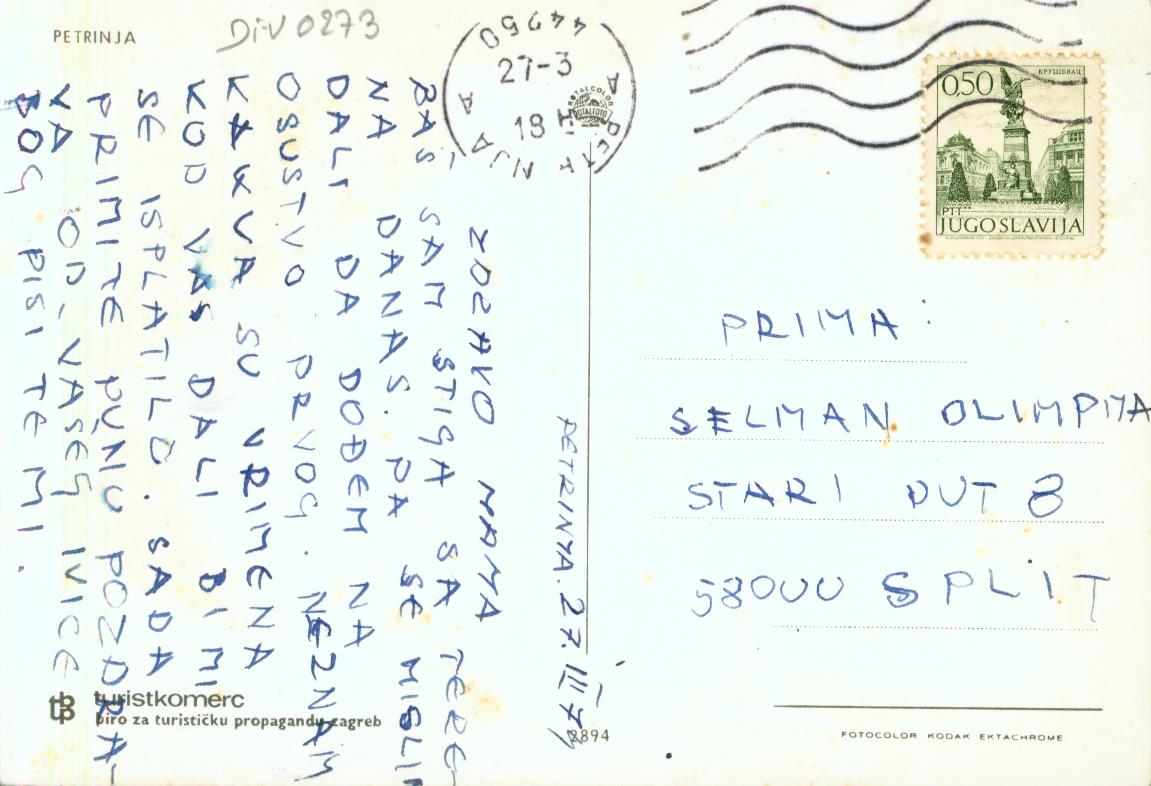 PETRINJA
DiV 0273
44250
27-3
ROTALCOLOR
ROTALFOTO
0,50
КРУШЕВАЦ
PTT
JUGOSLAVIJA
PETRINJA. 27. III 74
ZDRAVO MAMA
RAŠ SAM STIGA SA TERE-
NA DANAS. PA SE MISLIM
DALI DA DOĐEM NA
OSUSTVO PRVOG. NEZNAM
KAKVA SU VRIMENA
KOD VAS DALI BI MI
SE ISPLATILO. SADA
PRIMITE PUNU POZDRA-
VA OD VAŠEG IVICE
BOG PIŠITE MI.
PRIMA:
SELMAN OLIMPIJA
STARI PUT 8
58000 SPLIT
turistkomerc
biro za turističku propagandu-zagreb
2894
FOTOCOLOR KODAK EKTACHROME